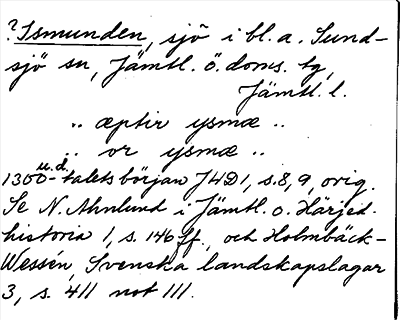 ?Ismunden, sjö i bl. a. Sund-
sjö sn, Jämtl. ö. doms. tg,
Jämtl. l.
.. æptir ysmæ ..
.. or ysmæ ..
u. d.
1300-talets början J4D1, s. 8, 9, orig.
Se N. Ahnlund i Jämtl. o. Härjed.
historia 1, s. 146 ff., och Holmbäck-
Wessén, Svenska landskapslagar
3, s. 411 not 111.